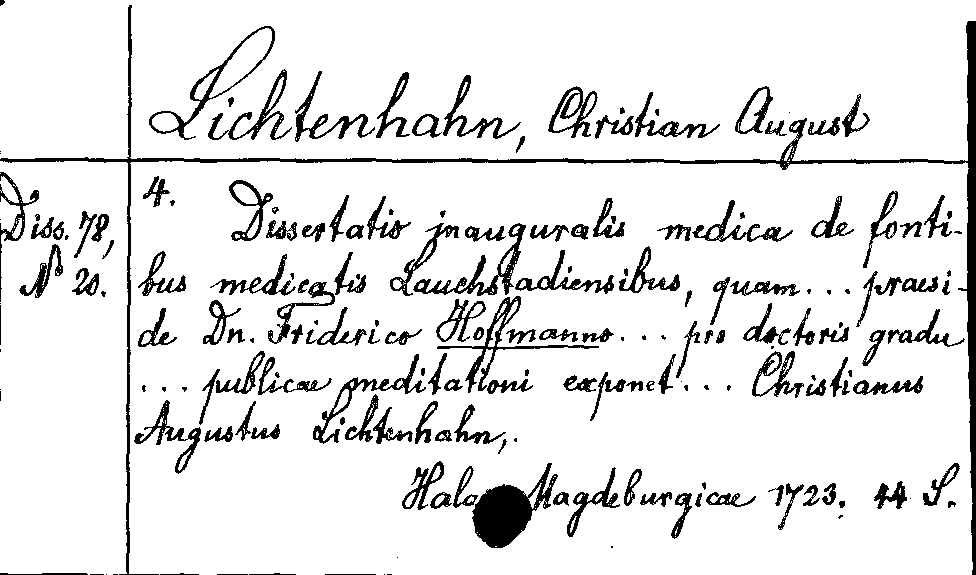 Lichtenhahn, Christian August
Diss. 78,
No 20.
4.
Dissertatio inauguralis medica de fonti-
bus medicatis Lauchstadiensibus, quam... praesi-
de Dn. Friderico Hoffmanno... pro doctoris gradu
... publicae meditationi exponet... Christianus
Augustus Lichtenhahn,.
Halae Magdeburgicae 1723. 44 S.